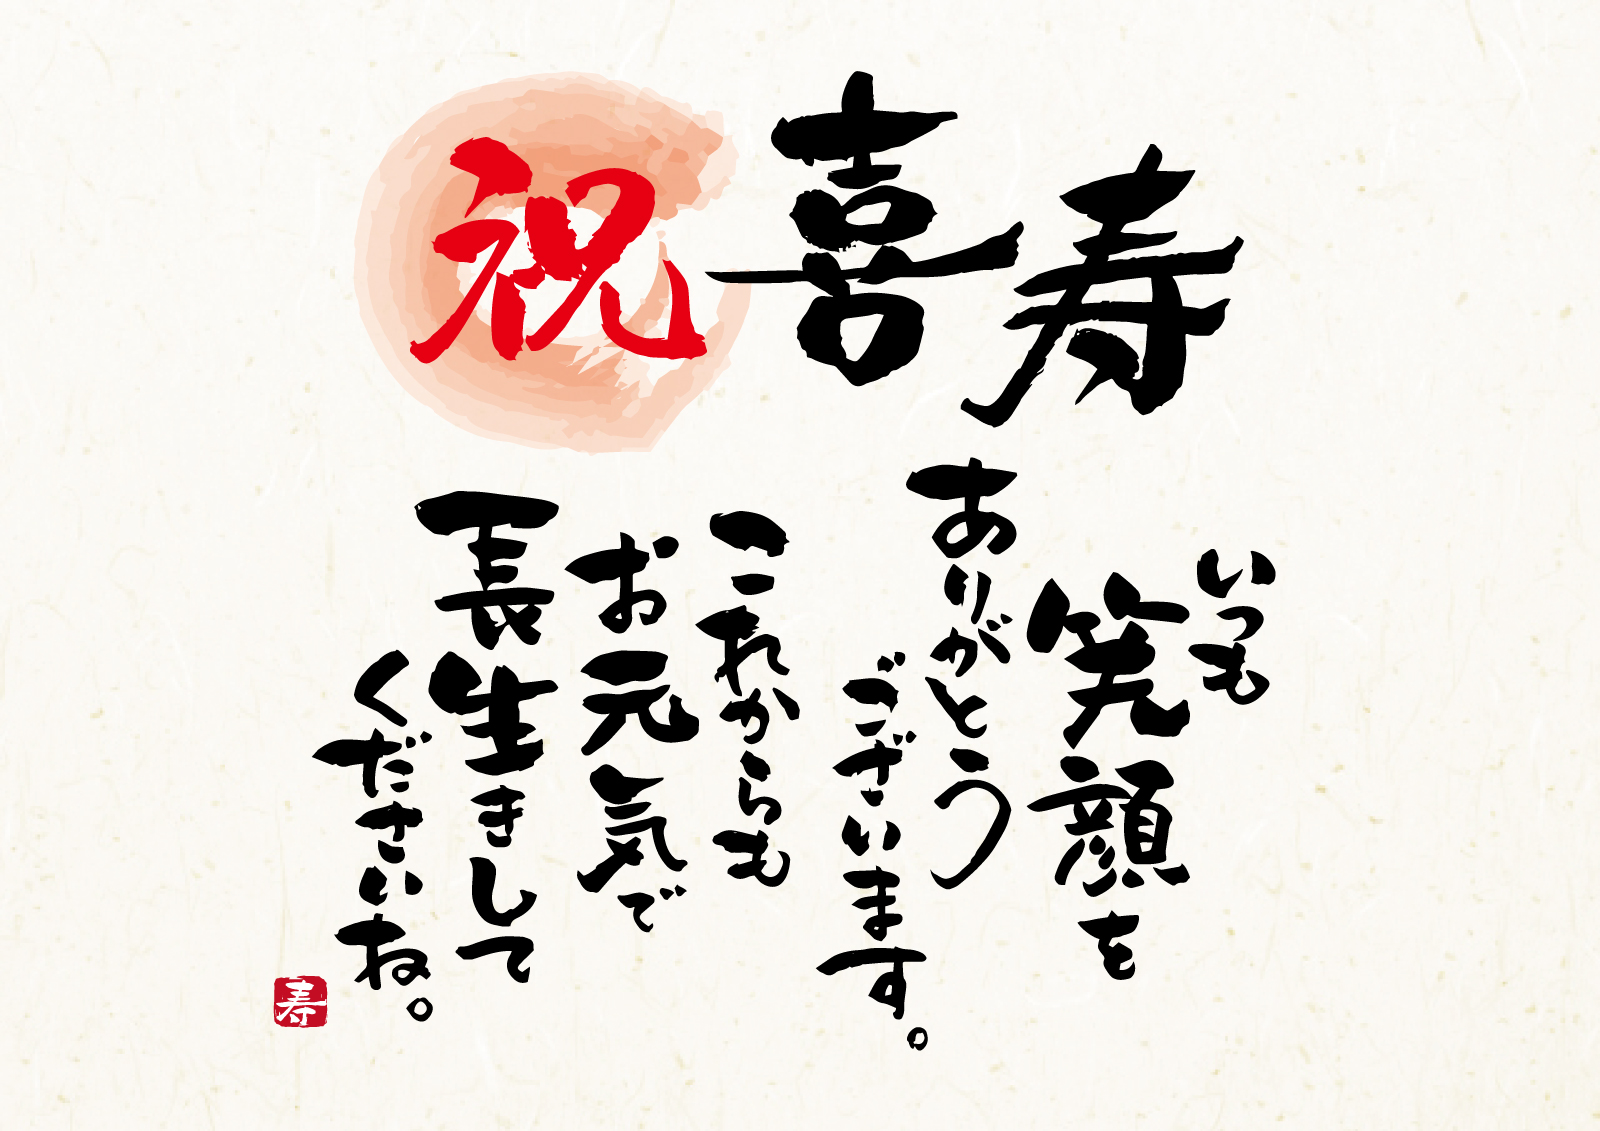 祝喜寿
いつも
笑顔を
ありがとう
ございます。
これからも
お元気で
長生きして
くださいね。
寿